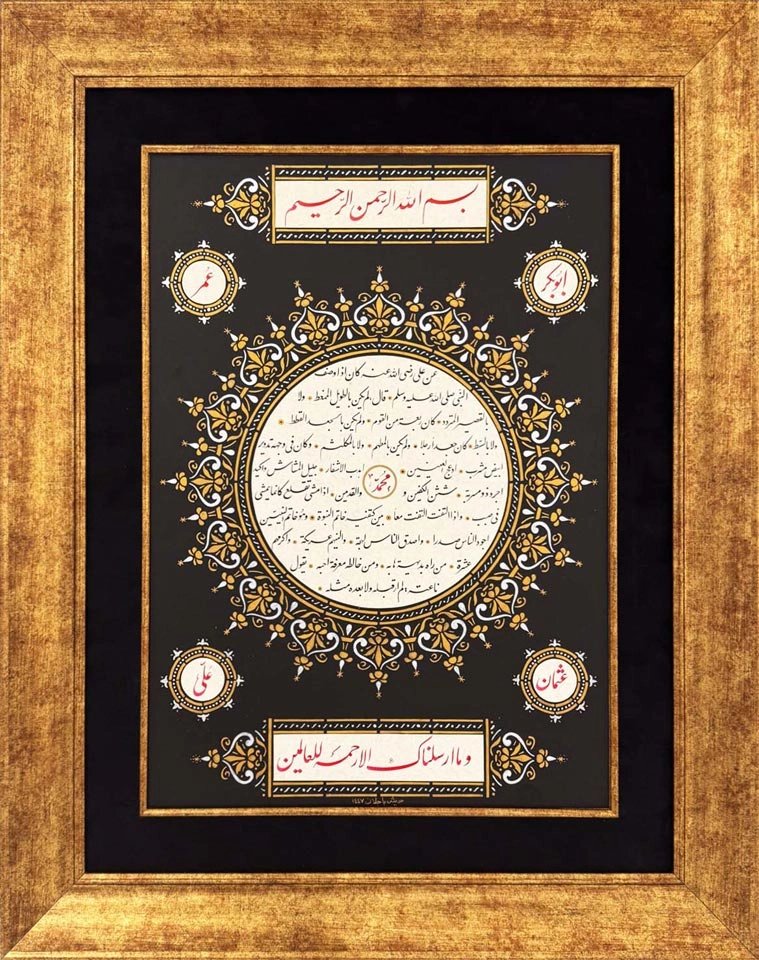 بسم الله الرحمن الرحيم
ابوبكر
عمر
عن على رضى الله عنه كان اذا وصف
النبى صلى الله عليه وسلم قال لم يكن بالطويل الممغط ولا
بالقصير المتردد كان ربعة من القوم ولم يكن بالجعد القطط
ولا بالسبط كان جعدا رجلا ولم يكن بالمطهم ولا بالمكلثم وكان فى وجهه تدوير
ابيض مشرب ادعج العينين اهدب الاشفار جليل المشاش والكتد
محمد
اجرد ذو مسربة شثن الكفين والقدمين اذا مشى تقلع كانما يمشى
فى صبب واذا التفت التفت معا بين كتفيه خاتم النبوة وهو خاتم النبيين
اجود الناس صدرا واصدق الناس لهجة والينهم عريكة واكرمهم
عشرة من راه بديهة هابه ومن خالطه معرفة احبه يقول
ناعته لم ار قبله ولا بعده مثله
عثمان
على
وما ارسلناك الا رحمة للعالمين
١٤٤٧